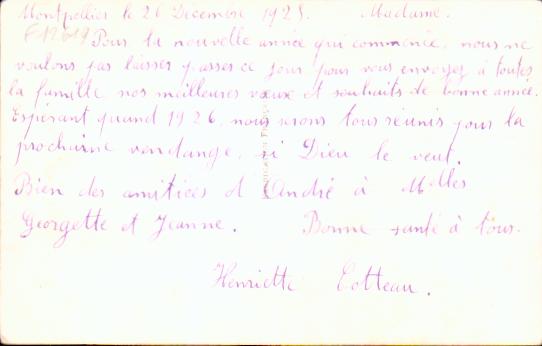 Montpellier le 26 Decembre 1925. Madame.
Pour la nouvelle année qui commence, nous ne
voulons pas laisser passer ce jour pour vous envoyer à toutes
la famille nos meilleures vœux et souhaits de bonne année.
Espérant quand 1926, nous serons tous réunis pour la
prochaine vendange, si Dieu le veut.
Bien des amitiées d'André à Melles
Georgette et Jeanne. Bonne santé à tous.
Henriette Cotteau.